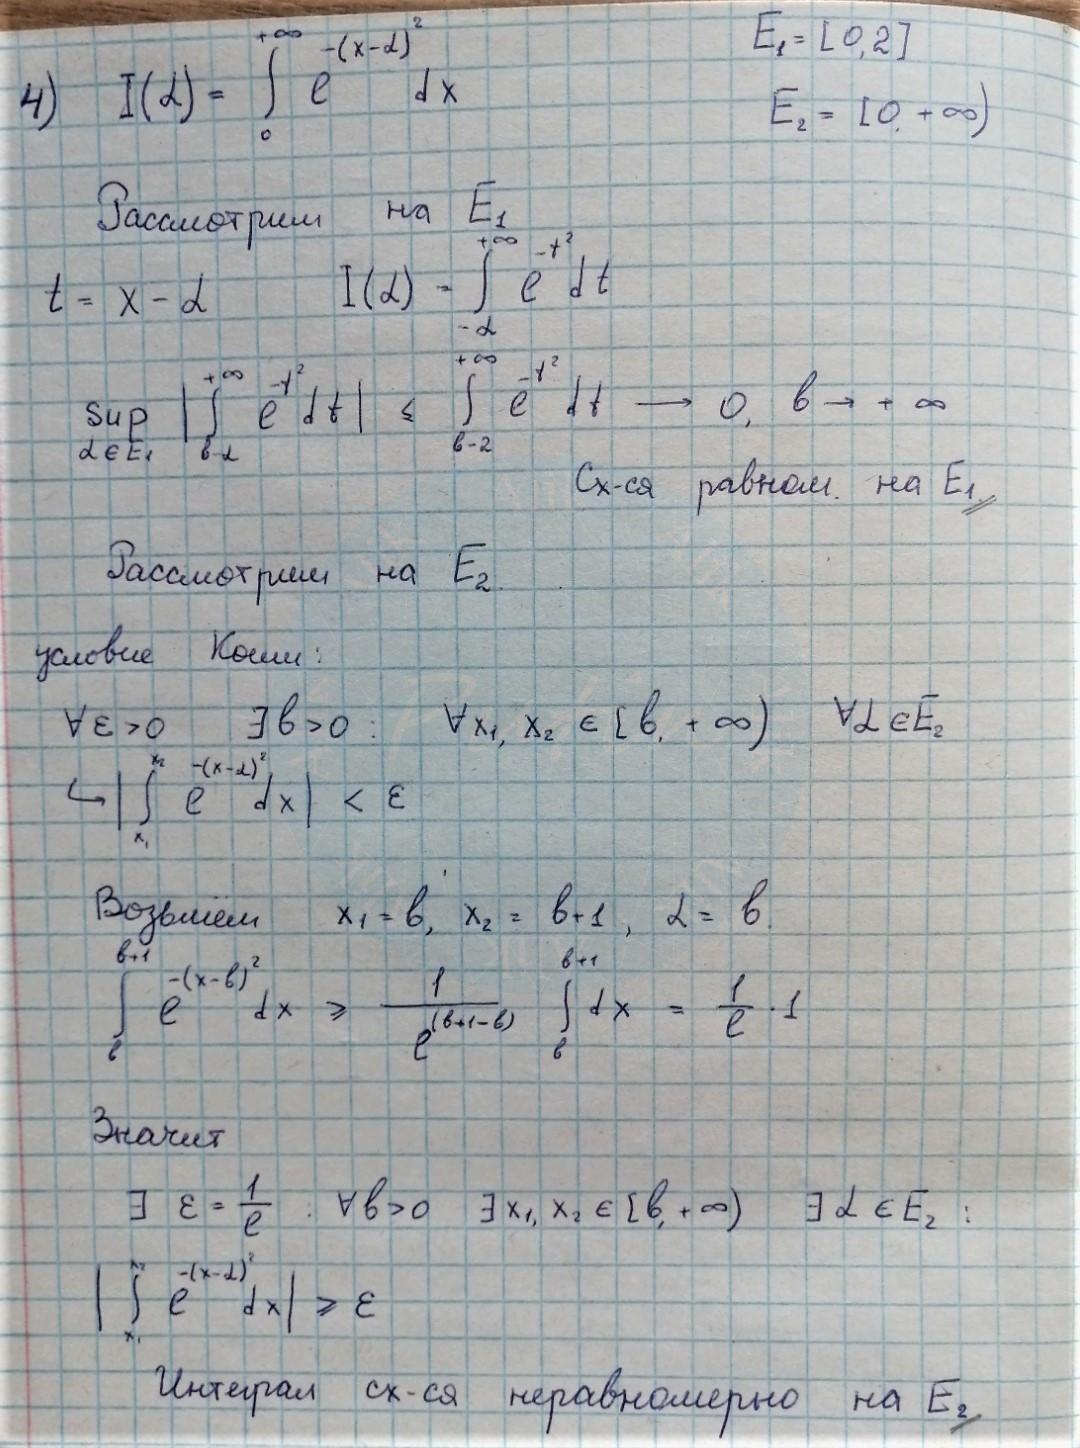 4) I(α) = ∫₀^{+∞} e^{-(x-α)²} dx E₁ = [0,2]
E₂ = [0, +∞)
Рассмотрим на E₁
t = x - α I(α) = ∫_{-α}^{+∞} e^{-t²} dt
sup_{α∈E₁} |∫_{b-α}^{+∞} e^{-t²} dt| ≤ ∫_{b-2}^{+∞} e^{-t²} dt → 0, b → +∞
Сх-ся равном. на E₁
Рассмотрим на E₂.
условие Коши:
∀ε>0 ∃b>0 : ∀x₁, x₂ ∈ [b, +∞) ∀α∈E₂
↪ |∫_{x₁}^{x₂} e^{-(x-α)²} dx| < ε
Возьмём x₁ = b, x₂ = b+1, α = b.
∫_b^{b+1} e^{-(x-b)²} dx ≥ 1/e^{(b+1-b)} ∫_b^{b+1} dx = 1/e · 1
Значит
∃ ε = 1/e : ∀b>0 ∃x₁, x₂ ∈ [b, +∞) ∃α ∈ E₂ :
|∫_{x₁}^{x₂} e^{-(x-α)²} dx| ≥ ε
Интеграл сх-ся неравномерно на E₂